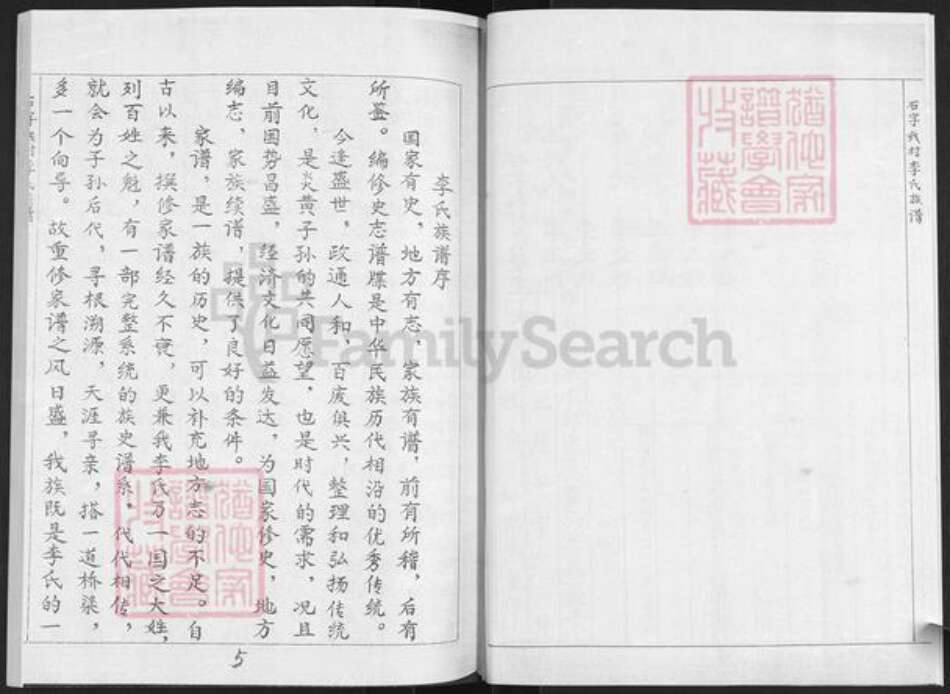 石字戈村李氏族谱
猶他家
譜學會
收藏
李氏族谱序
国家有史，地方有志，家族有谱，前有所稽，后有
所鉴。编修史志谱牒是中华民族历代相沿的优秀传统。
今逢盛世，政通人和，百废俱兴，整理和弘扬传统
文化，是炎黄子孙的共同愿望，也是时代的需求，况且
目前国势昌盛，经济文化日益发达，为国家修史，地方
编志，家族续谱，提供了良好的条件。
家谱，是一族的历史，可以补充地方志的不足。自
古以来，撰修家谱经久不衰，更兼我李氏乃一国之大姓，
列百姓之魁，有一部完整系统的族史谱系，代代相传，
就会为子孙后代，寻根溯源，天涯寻亲，搭一道桥梁，
多一个向导。故重修家谱之风日盛，我族既是李氏的一
猶他家
譜學會
收藏
5
FamilySearch